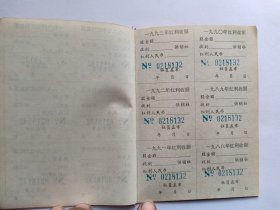 一九九三年红利收据
股金额
收到 供销社
红利人民币
Nº 0218132
社员盖章
年 月 日
一九九〇年红利收据
股金额
收到 供销社
红利人民币
Nº 0218132
社员盖章
年 月 日
一九九二年红利收据
股金额
收到 供销社
红利人民币
Nº 0218132
社员盖章
年 月 日
一九八九年红利收据
股金额
收到 供销社
红利人民币
Nº 0218132
社员盖章
年 月 日
一九九一年红利收据
股金额
收到 供销社
红利人民币
Nº 0218132
社员盖章
年 月 日
一九八八年红利收据
股金额
收到 供销社
红利人民币
Nº 0218132
社员盖章
年 月 日